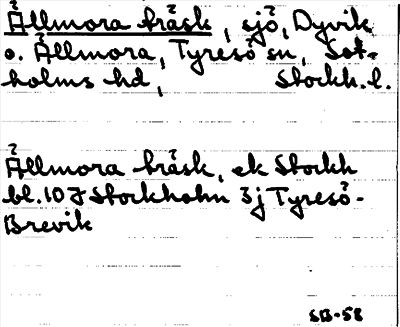 Ållmora träsk, sjö, Dyvik
o. Ållmora, Tyresö sn, Sot-
holms hd, Stockh. l.
Ållmora träsk, ek Stockh
bl. 10 J Stockholm 3j Tyresö-
Brevik
SB-58